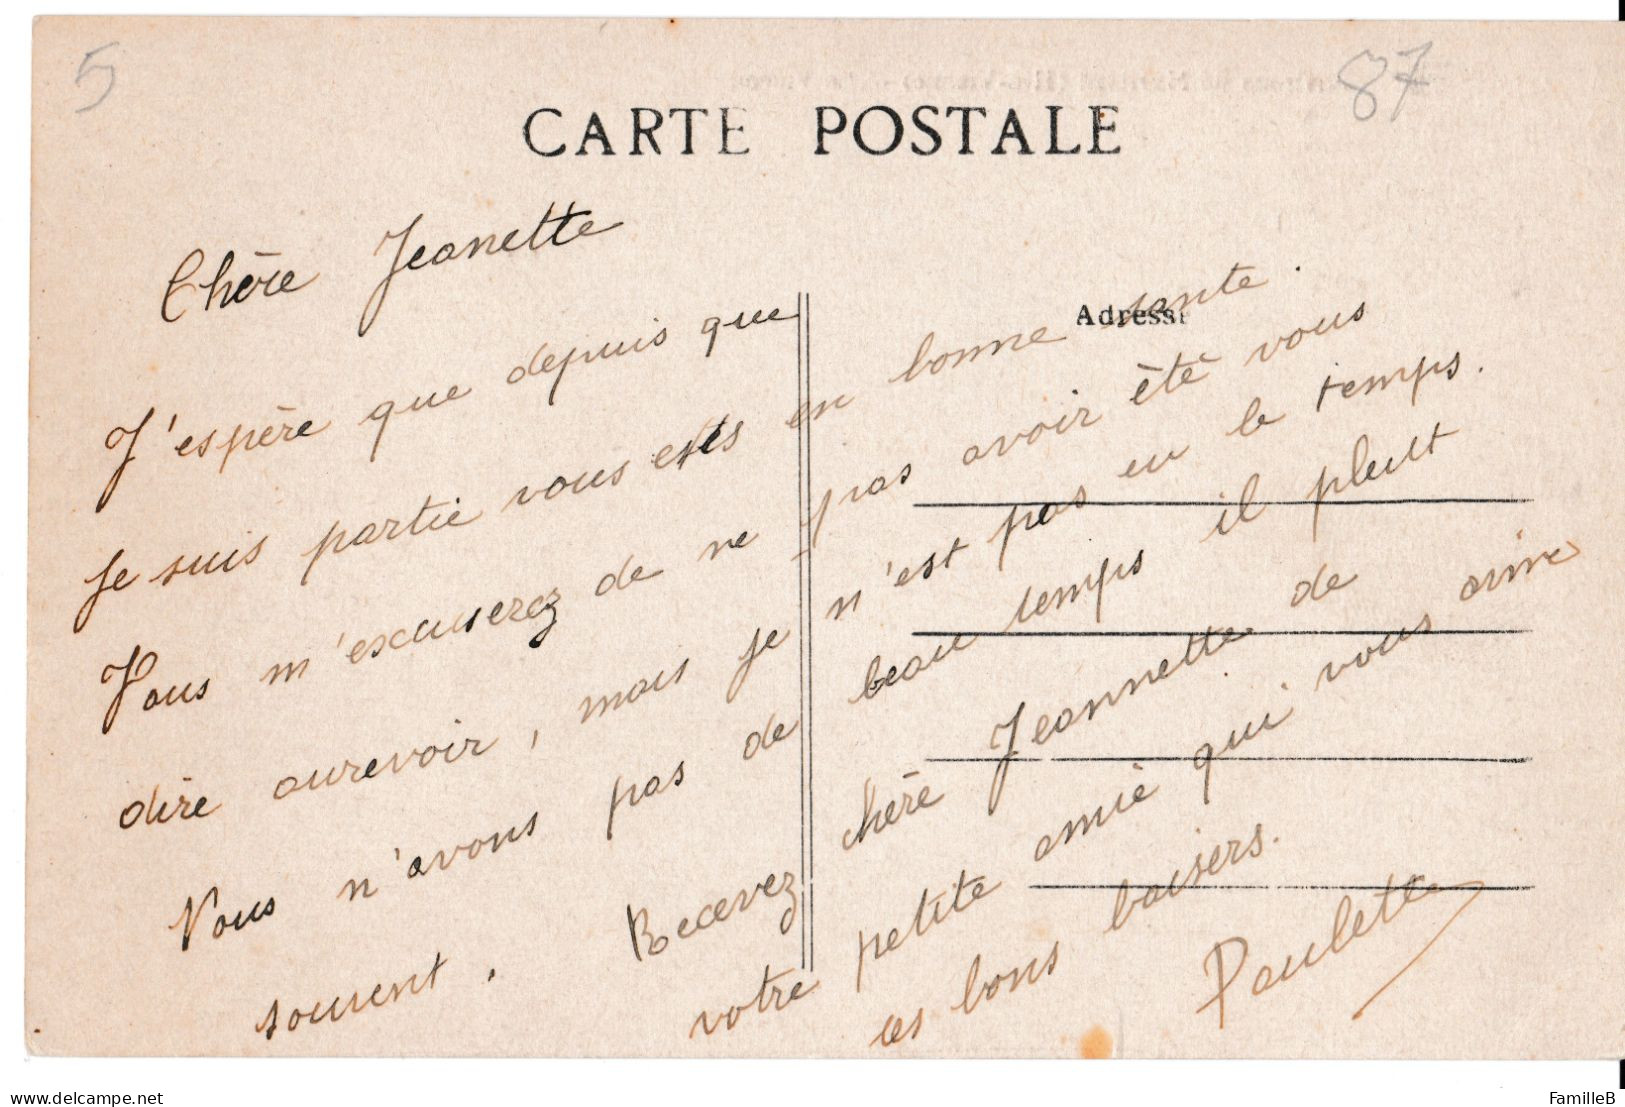 5
87
CARTE POSTALE
Adresse
Chère Jeanette
J'espère que depuis que
je suis partie vous estes en bonne sante.
Vous m'excuserez de ne pas avoir été vous
dire aurevoir, mais je n'est pas eu le temps.
Nous n'avons pas de beau temps il pleut
souvent. Recevez chère Jeannette de
votre petite amie qui vous aime
ces bons baisers.
Paulette
www.delcampe.net
FamilleB